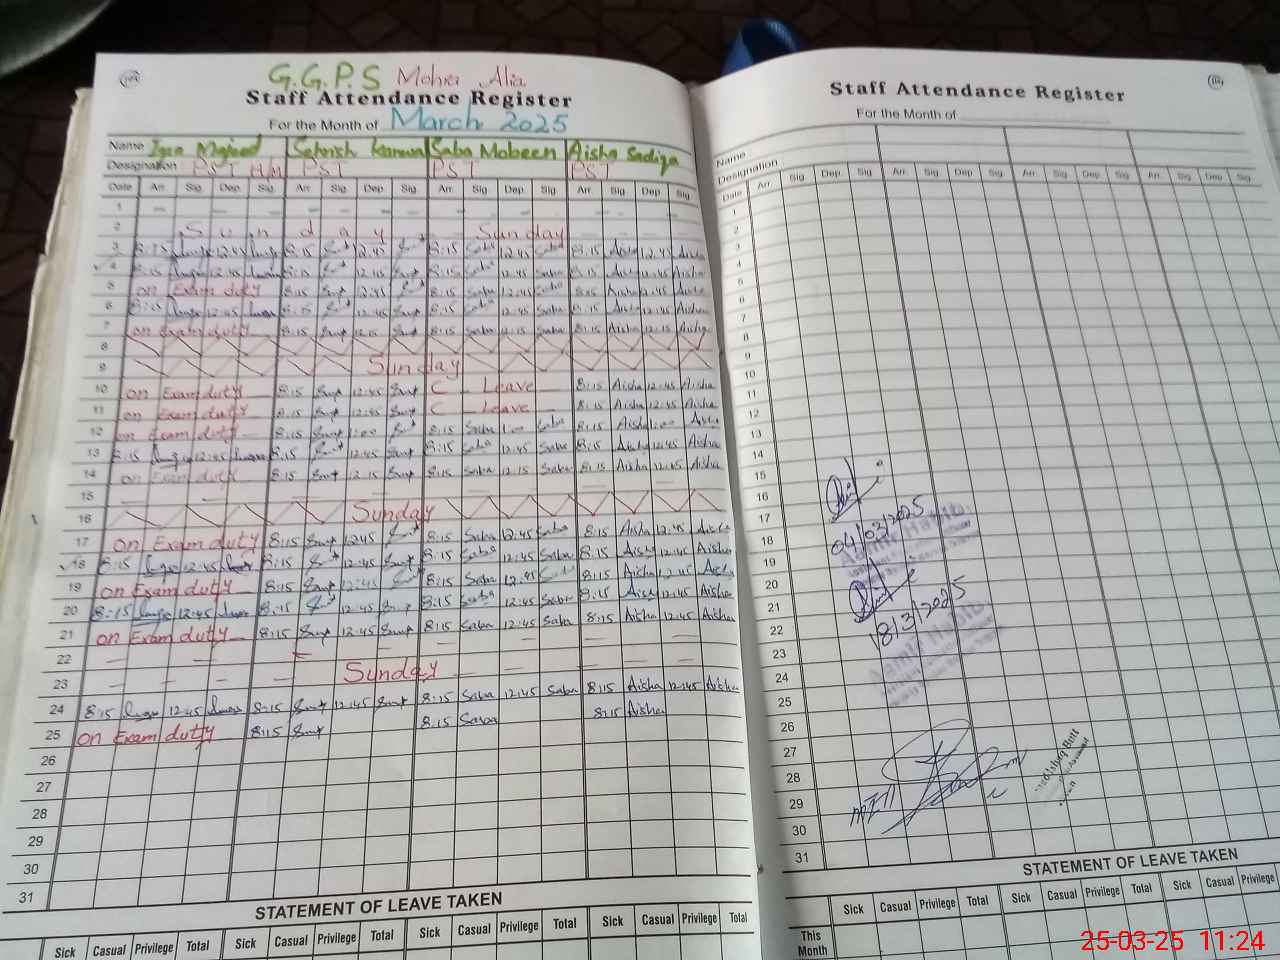 G.G.P.S Mohra Alia
Staff Attendance Register
For the Month of March 2025
Name Majeed Sehrish Saba Mobeen Aisha Sadiqa
Designation PST H/M PST PST PST
Date Arr. Sig. Dep. Sig Arr. Sig Dep. Sig Arr. Sig Dep. Sig Arr. Sig Dep. Sig
1 — — — —
2 Sunday Sunday
3 8:15 12:45 8:15 12:45 8:15 Saba 12:45 Saba 8:15 Aisha 12:45 Aisha
4 8:15 12:45 8:15 12:45 8:15 Saba 12:45 Saba 8:15 Aisha 12:45 Aisha
5 on Exam duty 8:15 12:45 8:15 Saba 12:45 Saba 8:15 Aisha 12:45 Aisha
6 8:15 12:45 8:15 12:45 8:15 Saba 12:45 Saba 8:15 Aisha 12:45 Aisha
7 on Exam duty 8:15 12:15 8:15 Saba 12:15 Saba 8:15 Aisha 12:15 Aisha
8
9 Sunday
10 on Exam duty 8:15 12:45 C Leave 8:15 Aisha 12:45 Aisha
11 on Exam duty 8:15 12:45 C Leave 8:15 Aisha 12:45 Aisha
12 on Exam duty 8:15 1:00 8:15 Saba 1:00 Saba 8:15 Aisha 1:00 Aisha
13 8:15 12:45 8:15 12:45 8:15 Saba 12:45 Saba 8:15 Aisha 12:45 Aisha
14 on Exam duty 8:15 12:15 8:15 Saba 12:15 Saba 8:15 Aisha 12:15 Aisha
15 — — — —
16 Sunday
17 on Exam duty 8:15 12:45 8:15 Saba 12:45 Saba 8:15 Aisha 12:45 Aisha
18 8:15 12:45 8:15 12:45 8:15 Saba 12:45 Saba 8:15 Aisha 12:45 Aisha
19 on Exam duty 8:15 12:45 8:15 Saba 12:45 8:15 Aisha 12:45 Aisha
20 8:15 12:45 8:15 12:45 8:15 Saba 12:45 Saba 8:15 Aisha 12:45 Aisha
21 on Exam duty 8:15 12:45 8:15 Saba 12:45 Saba 8:15 Aisha 12:45 Aisha
22 — — — —
23 Sunday
24 8:15 12:45 8:15 12:45 8:15 Saba 12:45 Saba 8:15 Aisha 12:45 Aisha
25 on Exam duty 8:15 8:15 Saba 8:15 Aisha
26
27
28
29
30
31
STATEMENT OF LEAVE TAKEN
Sick Casual Privilege Total Sick Casual Privilege Total Sick Casual Privilege Total Sick Casual Privilege Total
Staff Attendance Register
For the Month of
Name
Designation
Date Arr. Sig. Dep. Sig Arr. Sig. Dep. Sig Arr. Sig. Dep. Sig Arr. Sig. Dep. Sig.
1
2
3
4
5
6
7
8
9
10
11
12
13
14
15
16
17
18
19
20
21
22
23
24
25
26
27
28
29
30
31
04/03/2025
18/3/2025
STATEMENT OF LEAVE TAKEN
Sick Casual Privilege Total Sick Casual Privilege Total Sick Casual Privilege
This Month
25-03-25 11:24